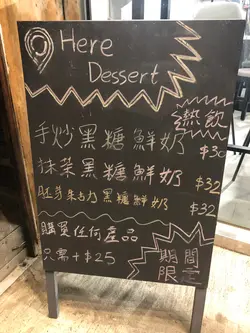 Here
Dessert
熱飲
手炒黑糖鮮奶 $30
抹茶黑糖鮮奶 $32
胚芽朱古力黑糖鮮奶 $32
購買任何產品
只需+$25
期間
限定